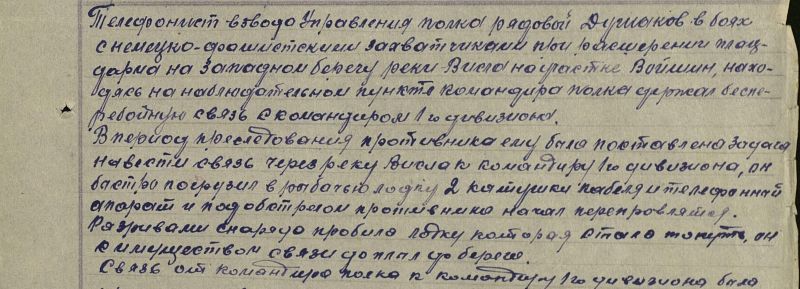 Телефонист взвода управления полка рядовой Душаков в боях
с немецко-фашистскими захватчиками при расширении плац-
дарма на западном берегу реки Висла на участке Войшин, нахо-
дясь на наблюдательном пункте командира полка держал беспе-
ребойную связь с командиром 1го дивизиона.
В период преследования противника ему была поставлена задача
навести связь через реку Висла к командиру 1го дивизиона, он
бастро погрузил в рыбачью лодку 2 катушки кабеля и телефонный
апорат и под обстрелом противника начал переправлятся.
Разривами снаряда пробило лодку которая стала тонуть, он
с имуществом связи доплал до берега.
Связь от командира полка к командиру 1го дивизиона была